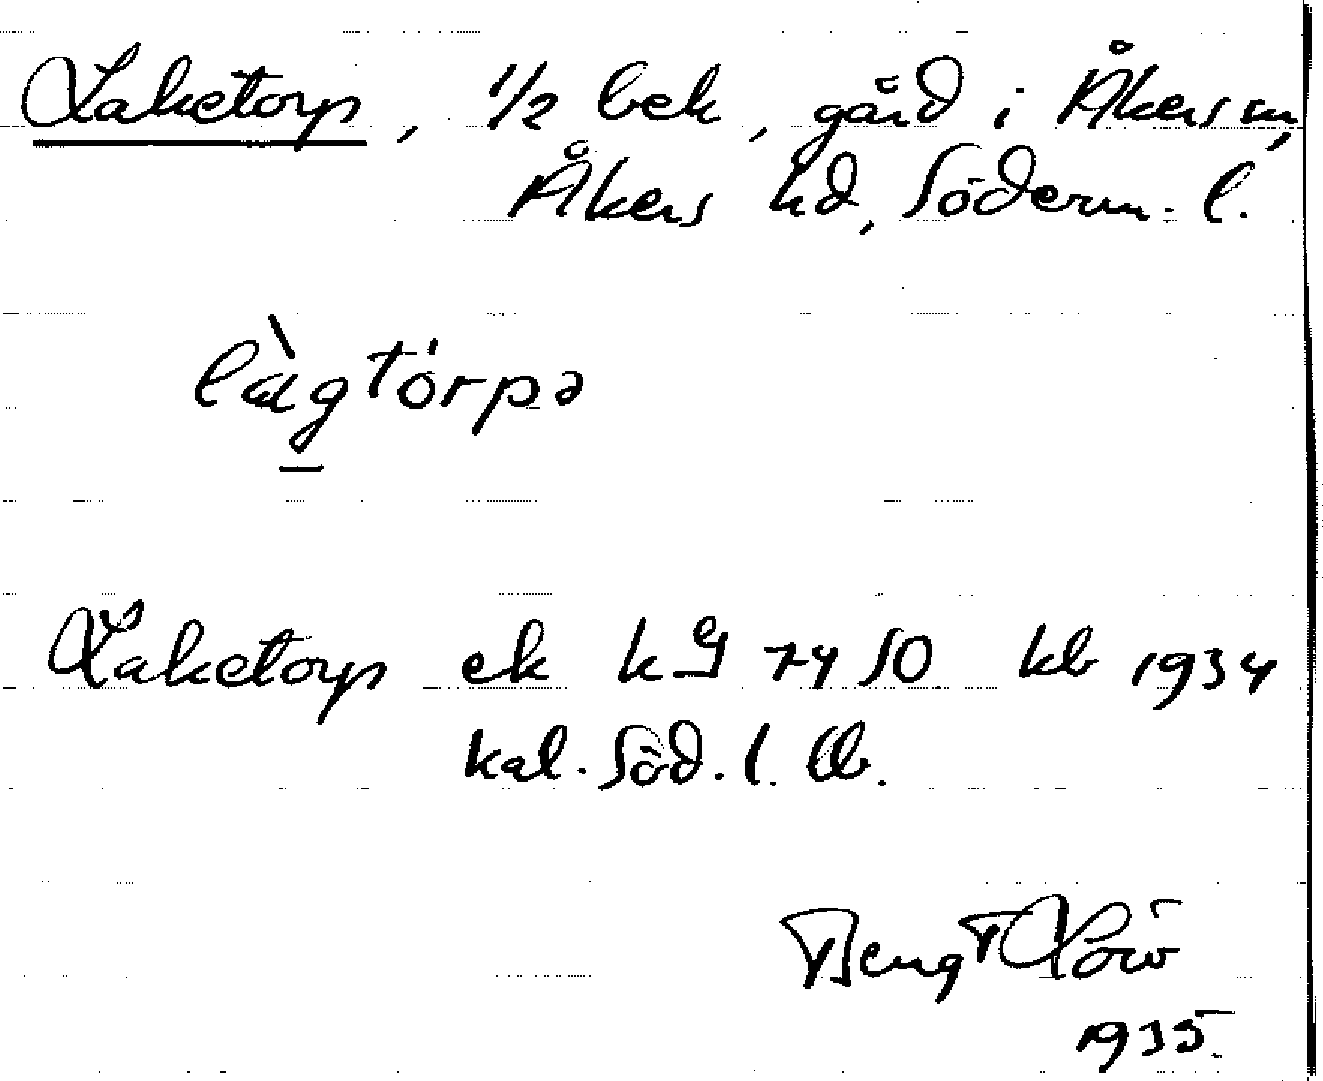 Laketorp, 1/2 bek, gård i Åkers sn,
Åkers hd, Söderm. l.
làgtórpə
Laketorp ek kg 7450 kb 1934
kal. Söd. l. lb.
Bengt
1935.